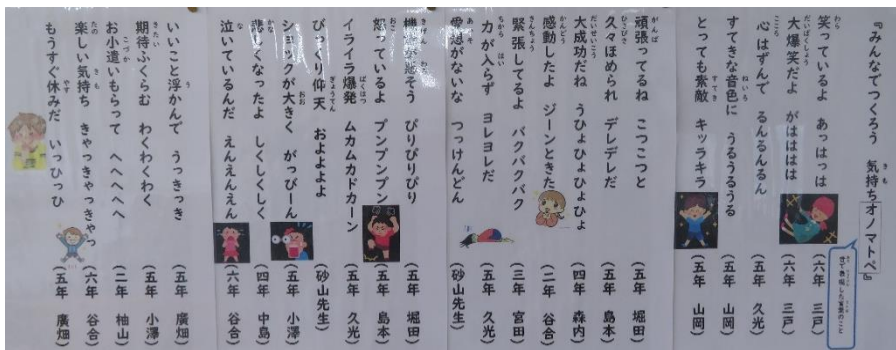 『みんなでつくろう 気持ちオノマトペ』
音で表現した言葉のこと
笑っているよ あっはっは (六年 三戸)
大爆笑だよ がはははは (六年 三戸)
心はずんで るんるんるん (五年 久光)
すてきな音色に うるうるうる (五年 山岡)
とっても素敵 キッラキラ (五年 山岡)
頑張ってるね こつこつと (五年 堀田)
久々ほめられ デレデレだ (五年 島本)
大成功だね うひょひょひょひょ (四年 森内)
感動したよ ジーンときた (二年 谷合)
緊張してるよ バクバクバク (三年 宮田)
力が入らず ヨレヨレだ (五年 久光)
愛想がないな つっけんどん (砂山先生)
機嫌が悪そう ぴりぴりぴり (五年 堀田)
怒っているよ プンプンプン (五年 島本)
イライラ爆発 ムカムカドカーン (五年 久光)
びっくり仰天 およよよよ (砂山先生)
ショックが大きく がっびーん (五年 小澤)
悲しくなったよ しくしくしく (四年 中島)
泣いているんだ えんえんえん (六年 谷合)
いいこと浮かんで うっきっき (五年 廣畑)
期待ふくらむ わくわくわく (五年 小澤)
お小遣いもらって へへへへへ (二年 柚山)
楽しい気持ち きゃっきゃっきゃっ (六年 谷合)
もうすぐ休みだ いっひっひ (五年 廣畑)